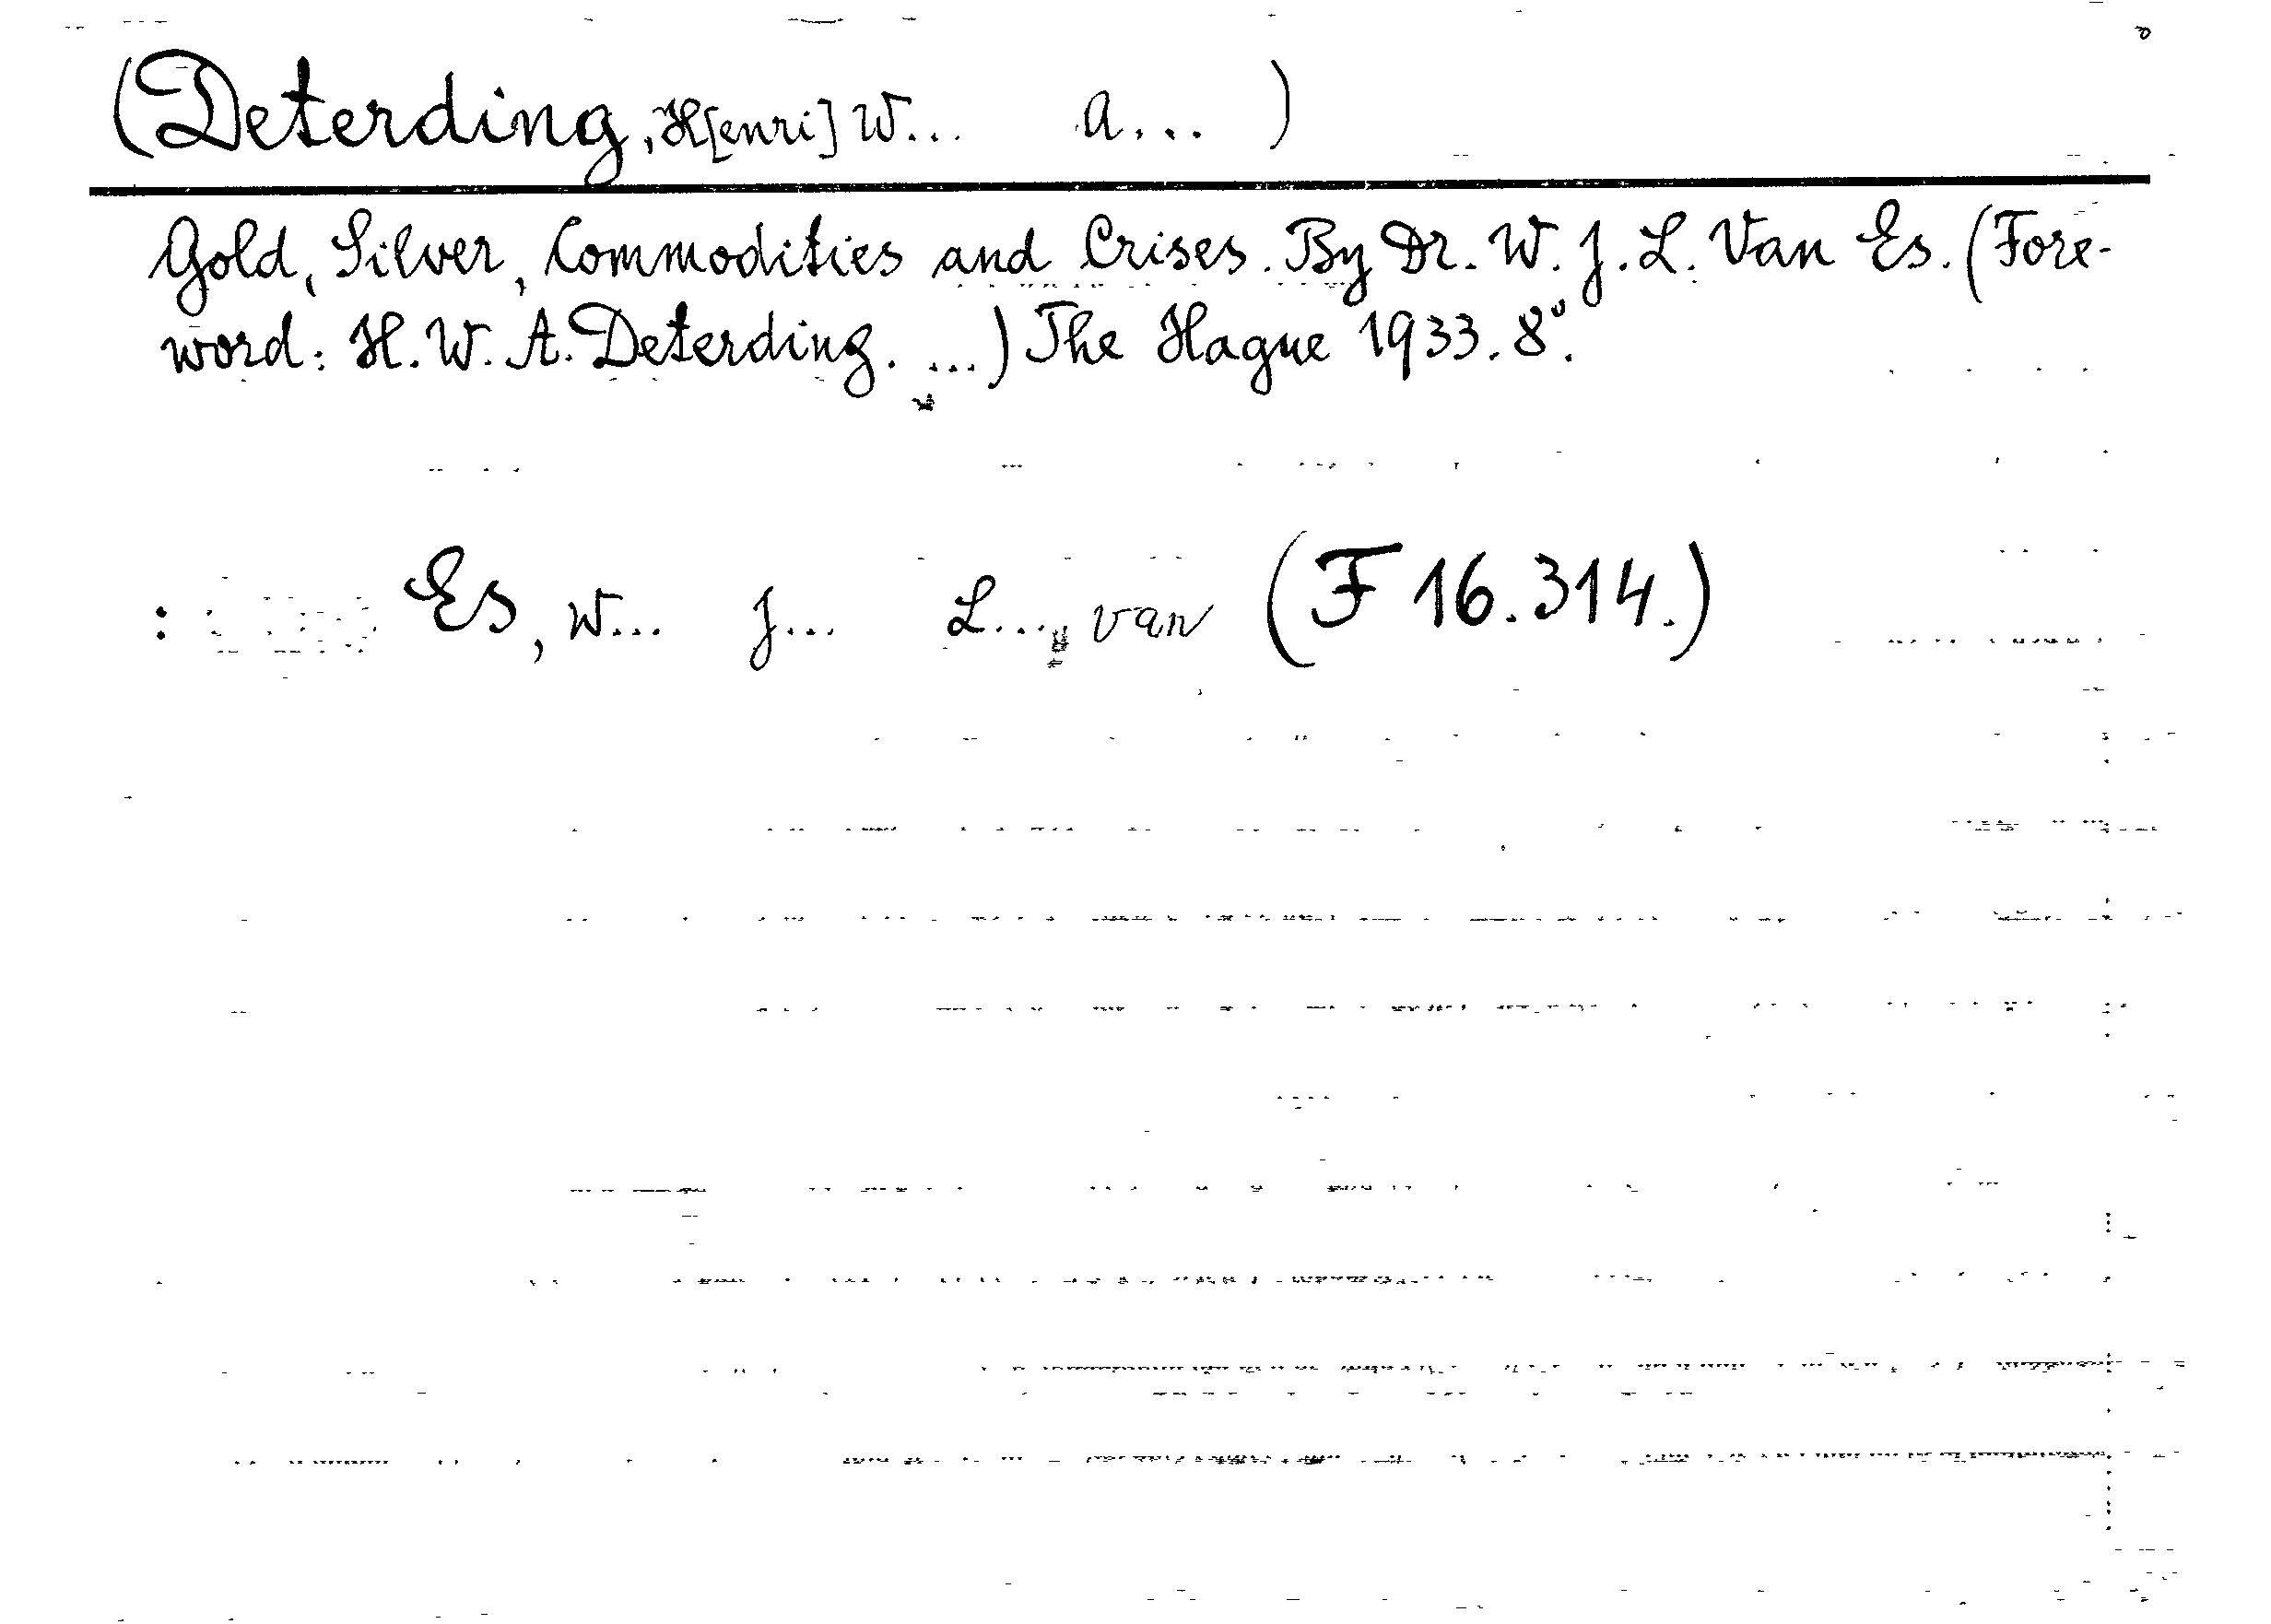 (Deterding, H[enri] W... A... )
Gold, Silver, Commodities and Crises. By Dr. W. J. L. Van Es. (Fore-
word: H. W. A. Deterding. ...) The Hague 1933. 8°.
: Es, W... J... L..., van (F 16.314.)